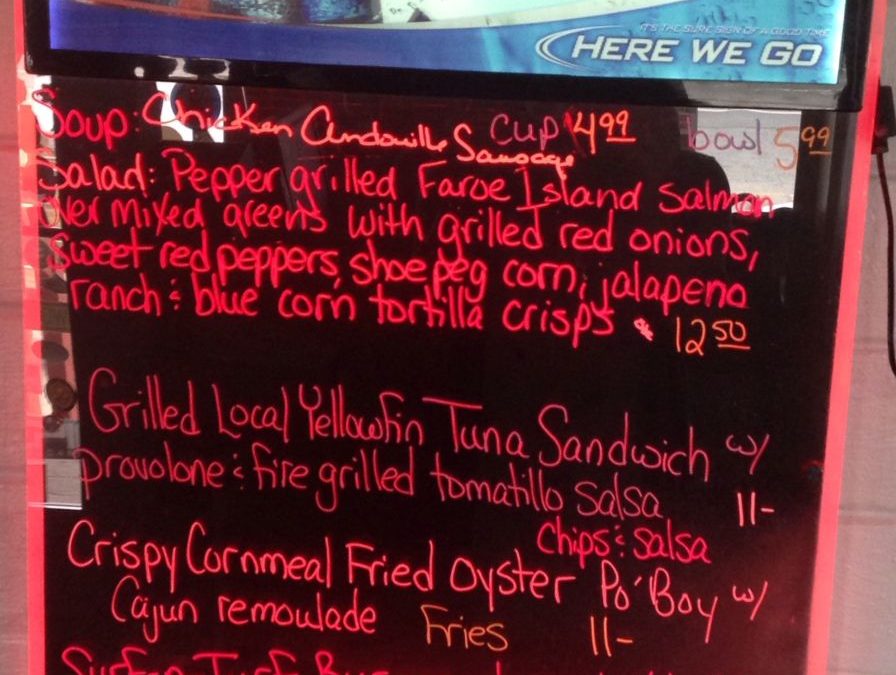 IT'S THE SURE SIGN OF A GOOD TIME
HERE WE GO
Soup: Chicken Andouille Sausage cup 4.99 bowl 5.99
Salad: Pepper grilled Faroe Island salmon
over mixed greens with grilled red onions,
sweet red peppers, shoepeg corn, jalapeno
ranch & blue corn tortilla crisps 12.50
Grilled Local Yellowfin Tuna Sandwich w/
provolone & fire grilled tomatillo salsa 11-
Chips & salsa
Crispy Cornmeal Fried Oyster Po'Boy w/
Cajun remoulade Fries 11-